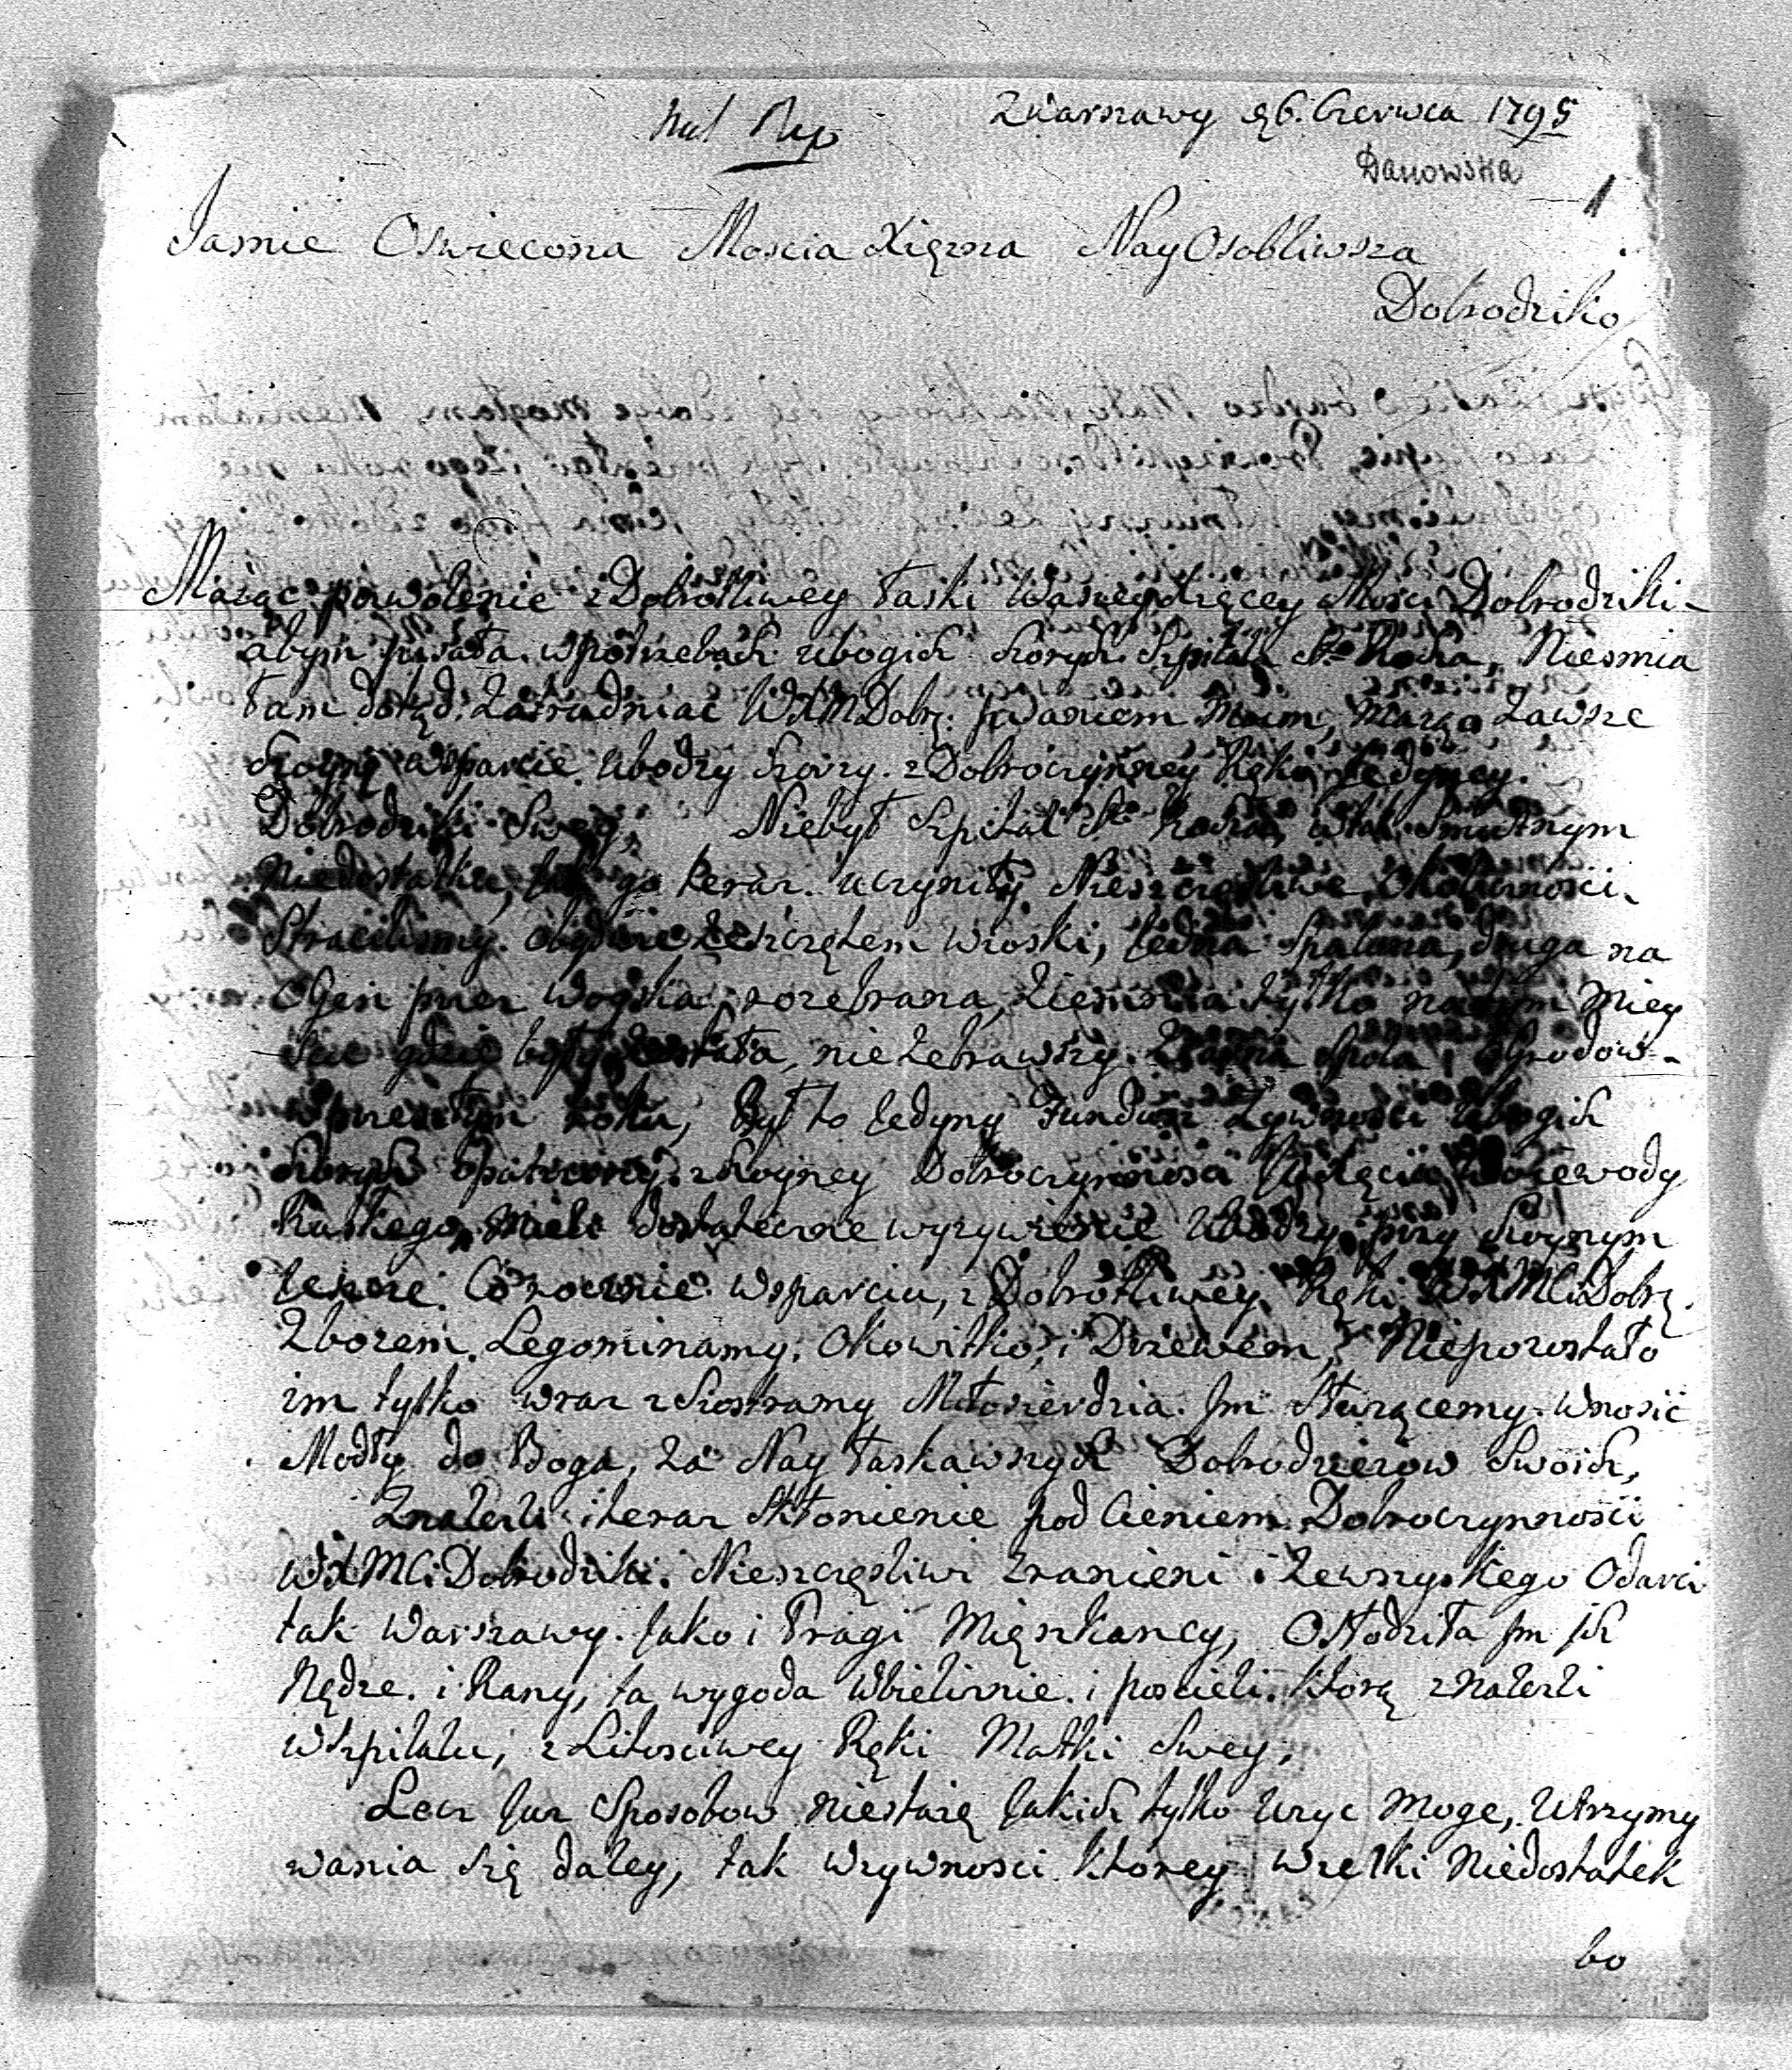 Zwarszawy 26. Czerwca 1795
Danowska
1
Jasnie Oswiecona Moscia Xięzna Nay Osobliwsza
Dobrodziko
Maiąc pozwolenie z Dobrotliwey łaski Waszey Xięcey Mosci Dobrodziki
abym pisała w potrzebach ubogich Chorych Szpitala S. Rocha, Niesmia
łam dotąd zatrudniać WXM Dobr: pisaniem Moim, Maiąc zawsze
Hoyne wsparcie ubodzy Chorzy z Dobroczynney Ręki Jedyney
Dobrodziki Swey, Niebył Szpital S. Rocha, w tak smutnym
Niedostatku, jak go teraz uczyniły Nieszczęsliwe Okolicznosci
Straciliśmy obydwie ze szczętem wioski, Jedna Spalona, druga na
Ogien przez woyska rozebrana, ziemia tylko na tym miey
scu gdzie były została, nie zebrawszy Ziarna Spola, i Ogrodow
w przeszłym roku, Był to Jedyny Fundusz Zywnosci ubogich
Chorych opatrzony z Hoyney Dobroczynnosci Xięcia Woiewody
Ruskiego, Mieli dostateczne wyzywienie Ubodzy, przy Hoynym
Jeszcze Corocznie wsparciu, z Dobrotliwey Ręki WXMCi Dobr
Zbozem, Legominamy, Okowitko, i Drzewem, Niepozostało
im tylko wraz z Siostramy Miłosierdzia Jm Słuzącemy wnosić
Modły do Boga, za Nay łaskawszych Dobrodzieiow Swoich,
Znalezli i teraz Skłonienie pod Cieniem Dobroczynnosci
WXMCi Dobrodziki Nieszczęsliwi zranieni i zewszyskiego Odarci
tak Warszawy Jako i Pragi Mięszkancy, Osłodziła Jm ich
Nędze i Rany, ta wygoda Wbieliznie i poscieli którą znalezli
wszpitalu, z Litosciwey Ręki Matki Swey,
Lecz Juz Sposobow niestaię Jakich tylko uzyc moge, utrzymy
wania się daley, tak wzywnosci ktorey wielki Niedostatek
bo